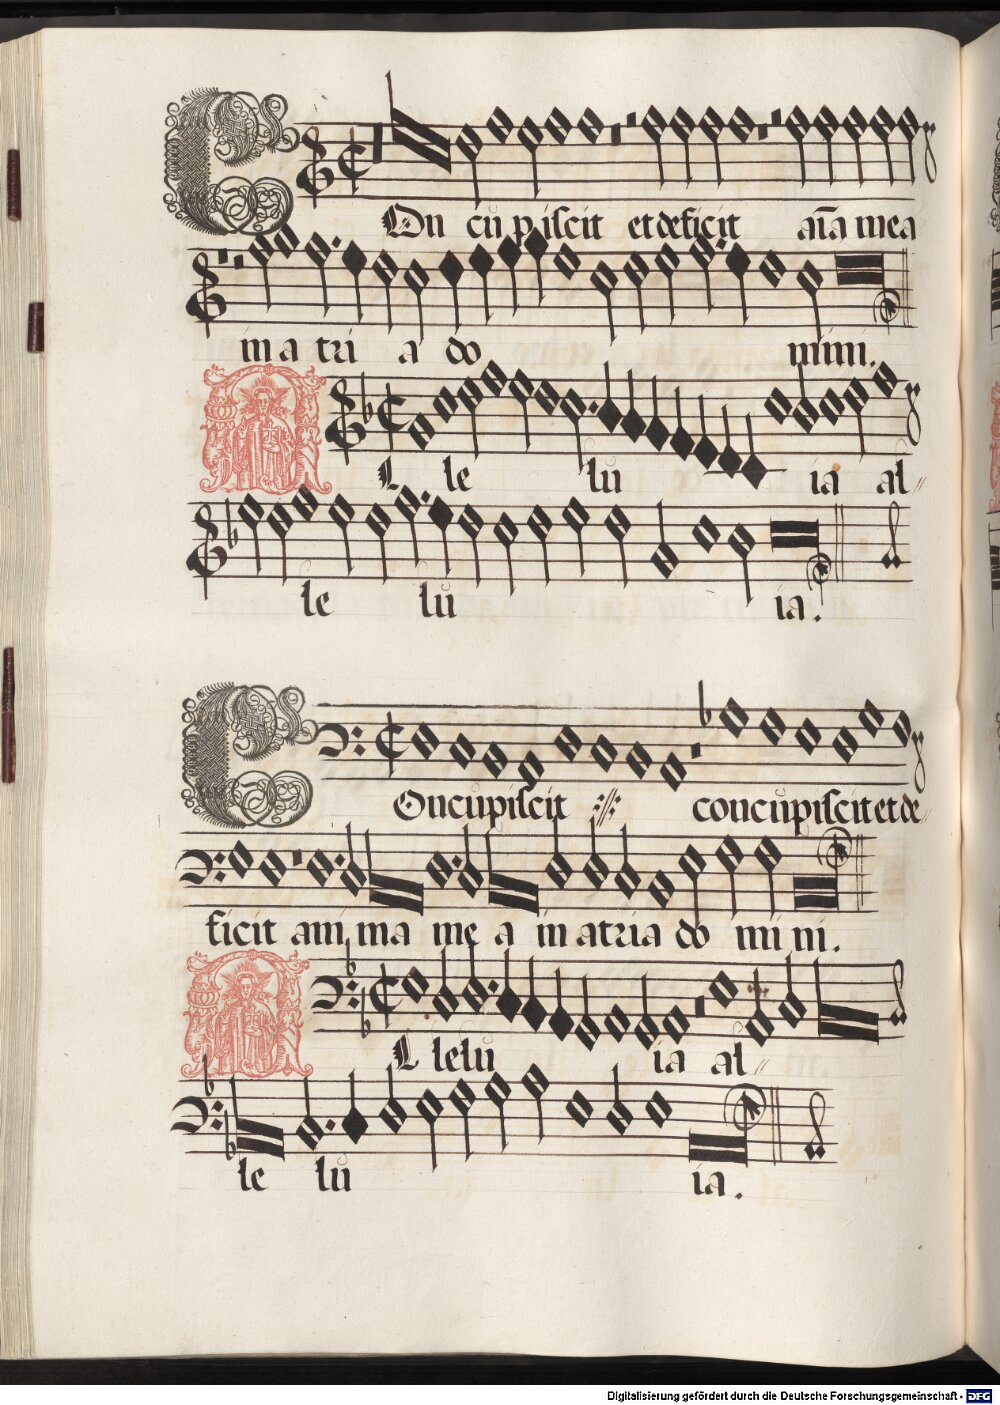 COn cu piscit et deficit aīa mea
in a tri a do mini.
AL le lu ia al
le lu ia.
COncupiscit concupiscit et de
ficit anima mea in atria do mini.
AL lelu ia al
le lu ia.
Digitalisierung gefördert durch die Deutsche Forschungsgemeinschaft - DFG